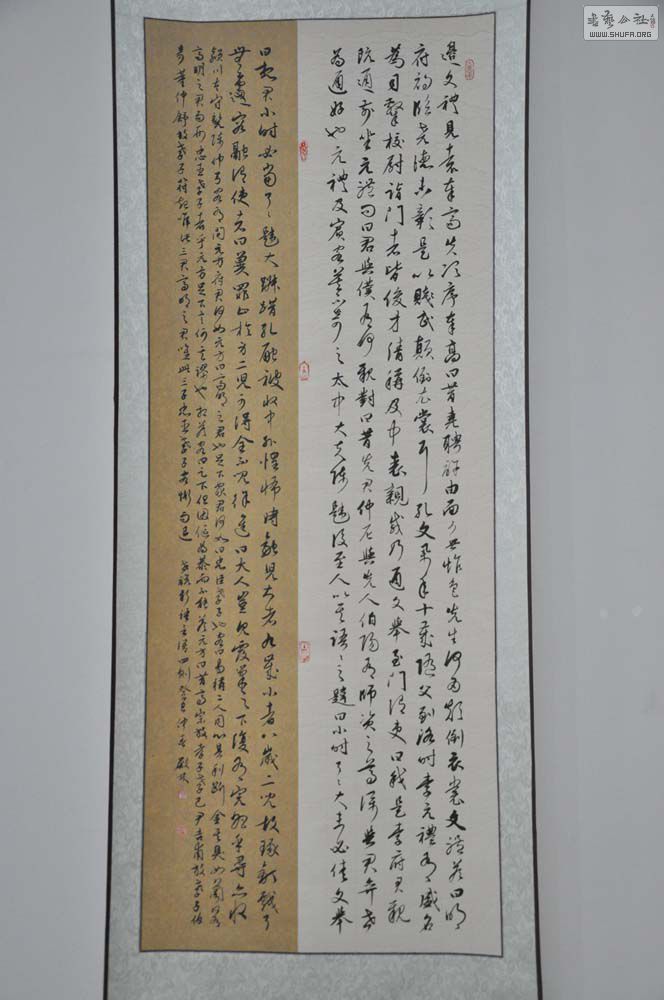 書藝公社
WWW.SHUFA.ORG
邊文禮見袁奉高失次序奉高曰昔堯聘許由面無怍色先生何為顛倒衣裳文禮答曰明
府初臨堯德未彰是以賤民顛倒衣裳耳孔文舉年十歲隨父到洛時李元禮有盛名
為司隸校尉詣門者皆俊才清稱及中表親戚乃通文舉至門謂吏曰我是李府君親
既通前坐元禮問曰君與僕有何親對曰昔先君仲尼與先人伯陽有師資之尊與君奕世
為通好也元禮及賓客莫不奇之太中大夫陳韙後至人以其語語之韙曰小時了了大未必佳文舉
曰想君小時必當了了韙大踧踖孔融被收中外惶怖時融兒大者九歲小者八歲二兒故琢釘戲了
無遽容融謂使者曰冀罪止於身二兒可得全不兒徐進曰大人豈見覆巢之下復有完卵乎尋亦收
潁川太守髡陳仲弓客有問元方府君何如元方曰高明之君也足下家君何如曰忠臣孝子也客曰易稱二人同心其利斷金其臭如蘭何有
高明之君而刑忠臣孝子者乎元方曰足下言何其謬也故不相答客曰足下但因傴為恭而不能答元方曰昔高宗放孝子孝己尹吉甫放孝子伯
奇董仲舒放孝子符起唯此三君高明之君唯此三子忠臣孝子客慚而退